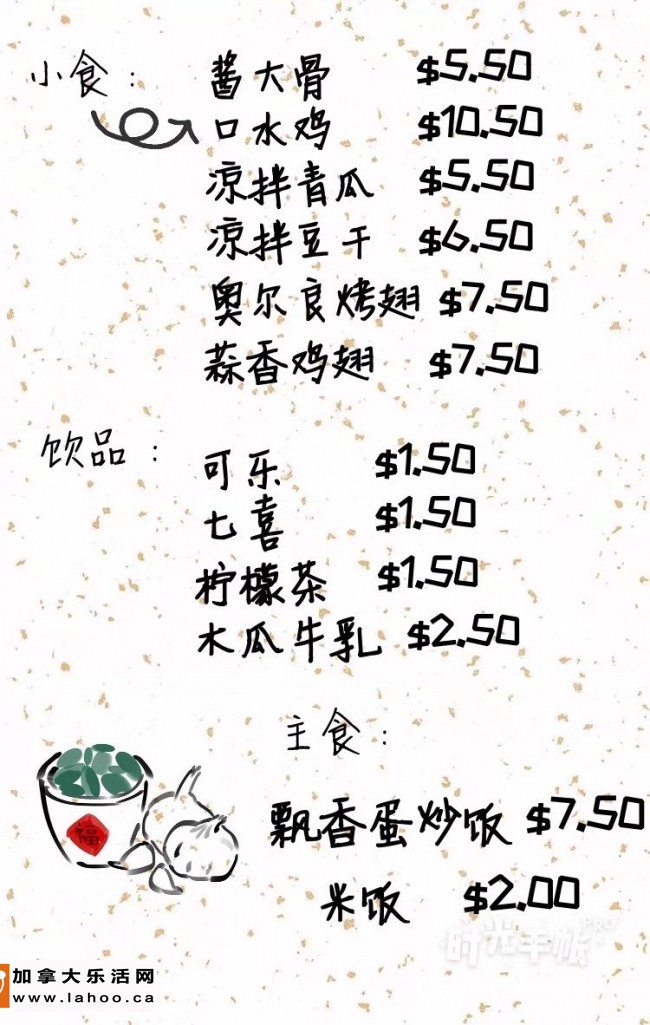 小食：
酱大骨 $5.50
口水鸡 $10.50
凉拌青瓜 $5.50
凉拌豆干 $6.50
奥尔良烤翅 $7.50
蒜香鸡翅 $7.50
饮品：
可乐 $1.50
七喜 $1.50
柠檬茶 $1.50
木瓜牛乳 $2.50
主食：
飘香蛋炒饭 $7.50
米饭 $2.00
福
时光手帐PRO
加拿大乐活网
www.lahoo.ca